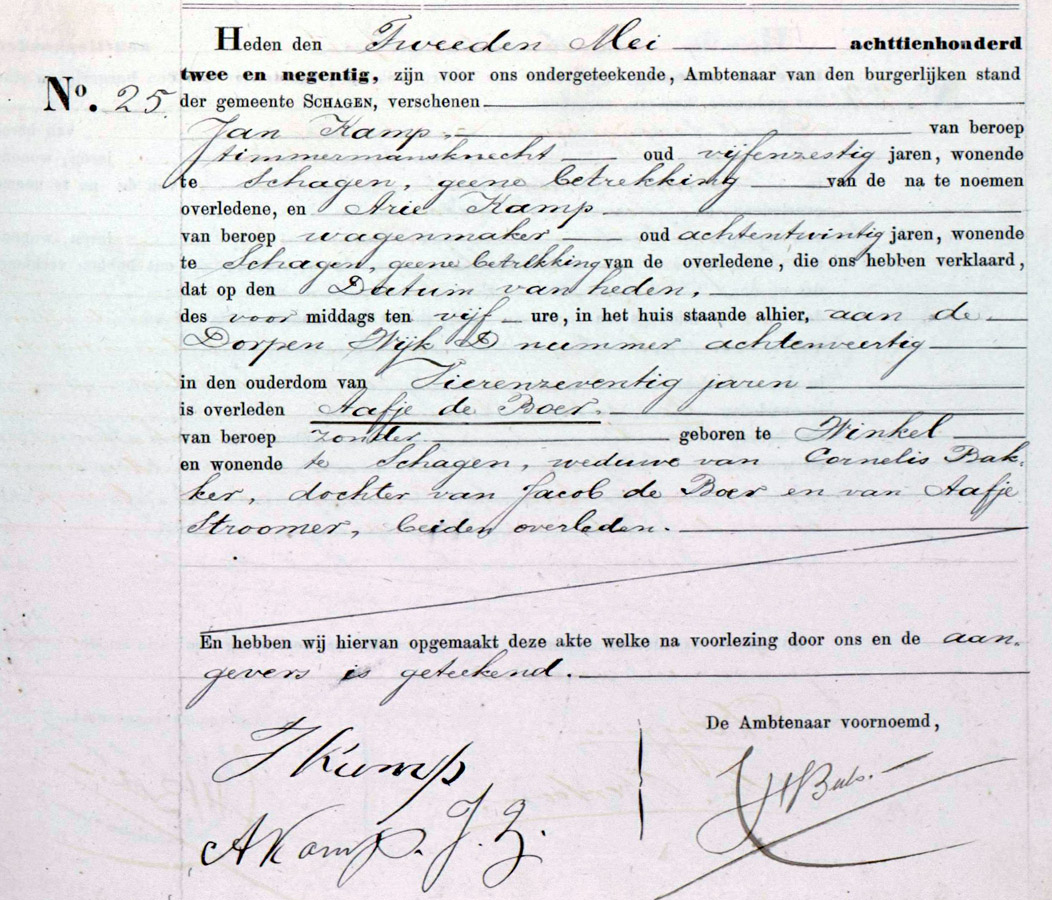 Heden den Tweeden Mei achttienhonderd
twee en negentig, zijn voor ons ondergeteekende, Ambtenaar van den burgerlijken stand
No. 25.
der gemeente SCHAGEN, verschenen
Jan Kamp, van beroep
timmermansknecht oud vijfenzestig jaren, wonende
te Schagen, geene betrekking van de na te noemen
overledene, en Arie Kamp
van beroep wagenmaker oud achtentwintig jaren, wonende
te Schagen, geene betrekking van de overledene, die ons hebben verklaard,
dat op den Datum van heden,
des voor middags ten vijf ure, in het huis staande alhier, aan de
Dorpen Wijk D nummer achtenveertig
in den ouderdom van Vierenzeventig jaren
is overleden Aafje de Boer.
van beroep zonder geboren te Winkel
en wonende te Schagen, weduwe van Cornelis Bak-
ker, dochter van Jacob de Boer en van Aafje
Stroomer, beiden overleden.
En hebben wij hiervan opgemaakt deze akte welke na voorlezing door ons en de aan-
gevers is geteekend.
De Ambtenaar voornoemd,
J Kamp
A Kamp. J. Z.